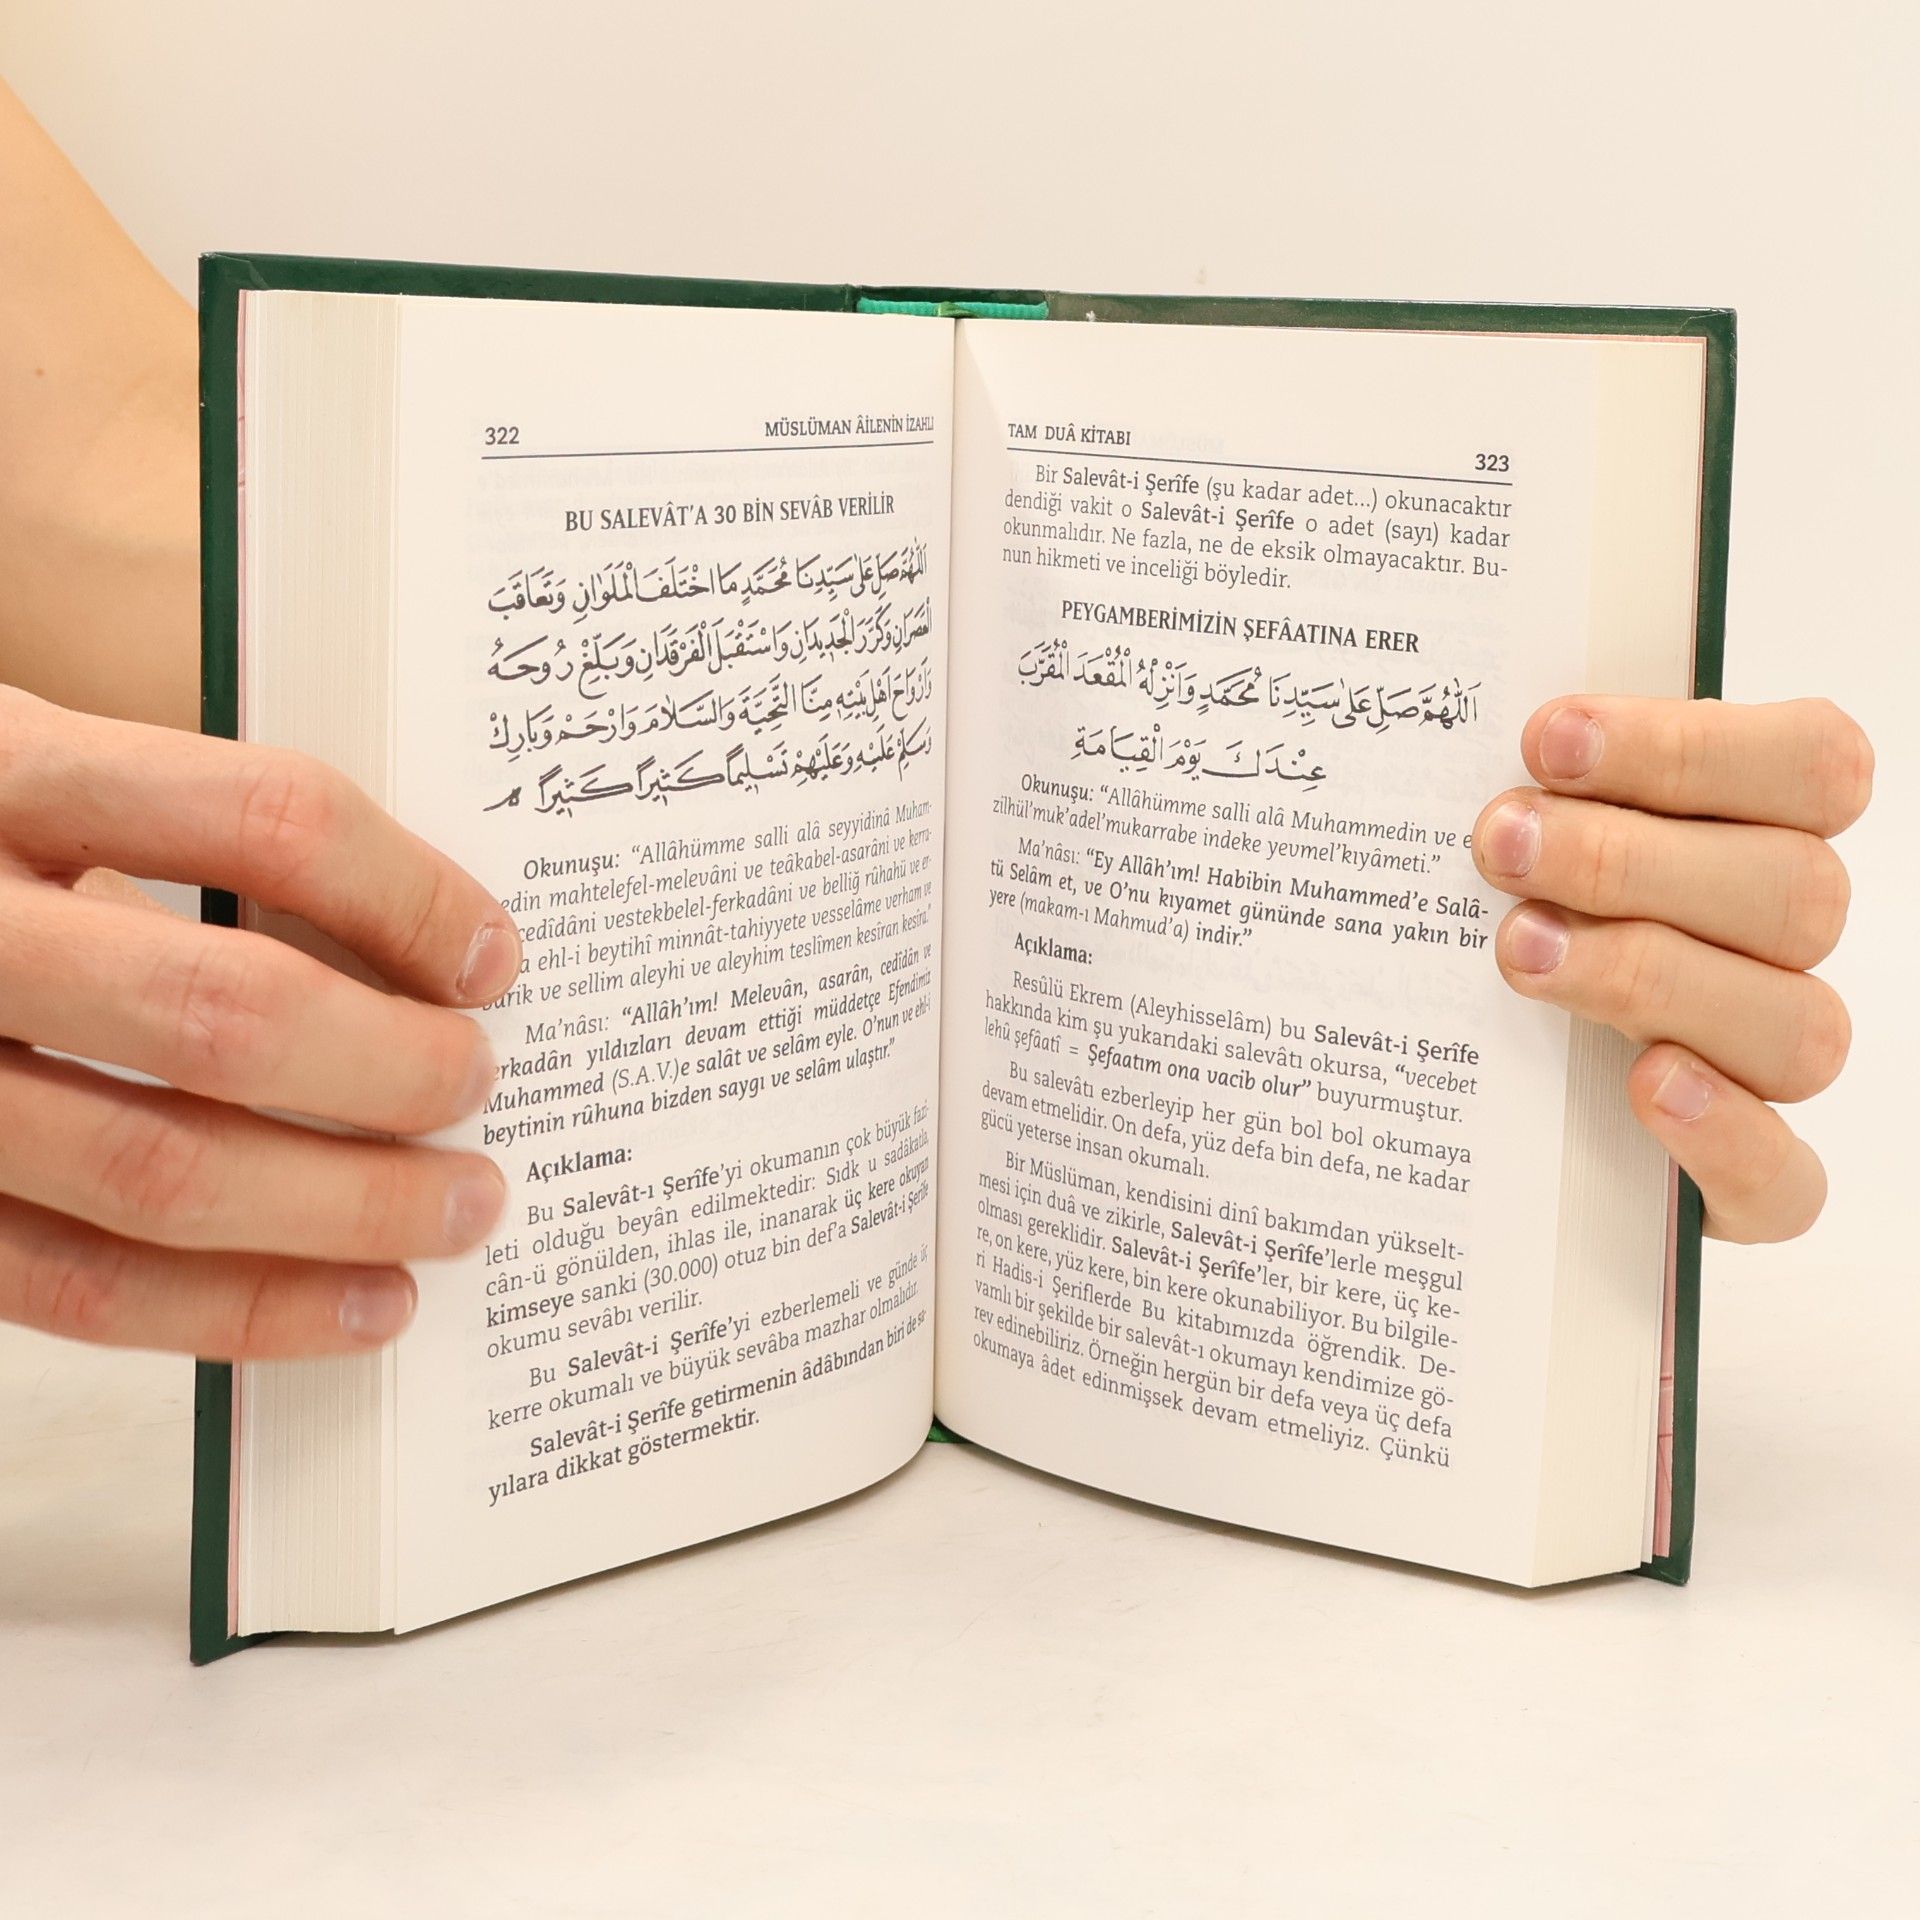 322
MÜSLÜMAN ÂİLENİN İZAHLI
BU SALEVÂT'A 30 BİN SEVÂB VERİLİR
اَللّٰهُمَّ صَلِّ عَلٰى سَيِّدِنَا مُحَمَّدٍ مَا اخْتَلَفَ الْمَلَوَانِ وَتَعَاقَبَ
الْعَصْرَانِ وَكَرَّرَ الْجَدِيدَانِ وَاسْتَقْبَلَ الْفَرْقَدَانِ وَبَلِّغْ رُوحَهُ
وَاَرْوَاحَ اَهْلِ بَيْتِهِ مِنَّا التَّحِيَّةَ وَالسَّلَامَ وَارْحَمْ وَبَارِكْ
وَسَلِّمْ عَلَيْهِ وَعَلَيْهِمْ تَسْلِيمًا كَثِيرًا كَثِيرًا
Okunuşu: “Allâhümme salli alâ seyyidinâ Muham-
edin mahtelefel-melevâni ve teâkabel-asarâni ve kerra-
cedîdâni vestekbelel-ferkadâni ve belliğ rûhahü ve er-
a ehl-i beytihî minnât-tahiyyete vesselâme verham ve
bârik ve sellim aleyhi ve aleyhim teslîmen kesîran kesîra.”
Ma'nâsı: “Allâh'ım! Melevân, asarân, cedîdân ve
erkadân yıldızları devam ettiği müddetçe Efendimiz
Muhammed (S.A.V.)e salât ve selâm eyle. O'nun ve ehl-i
beytinin rûhuna bizden saygı ve selâm ulaştır.”
Açıklama:
Bu Salevât-ı Şerîfe'yi okumanın çok büyük fazi-
leti olduğu beyân edilmektedir: Sıdk u sadâkatla,
cân-ü gönülden, ihlas ile, inanarak üç kere okuyan
kimseye sanki (30.000) otuz bin def'a Salevât-i Şerîfe
okumu sevâbı verilir.
Bu Salevât-i Şerîfe'yi ezberlemeli ve günde üç
kerre okumalı ve büyük sevâba mazhar olmalıdır.
Salevât-i Şerîfe getirmenin âdâbından biri de sa-
yılara dikkat göstermektir.
TAM DUÂ KİTABI
323
Bir Salevât-i Şerîfe (şu kadar adet...) okunacaktır
dendiği vakit o Salevât-i Şerîfe o adet (sayı) kadar
okunmalıdır. Ne fazla, ne de eksik olmayacaktır. Bu-
nun hikmeti ve inceliği böyledir.
PEYGAMBERİMİZİN ŞEFÂATINA ERER
اَللّٰهُمَّ صَلِّ عَلٰى سَيِّدِنَا مُحَمَّدٍ وَاَنْزِلْهُ الْمُقْعَدَ الْمُقَرَّبَ
عِنْدَكَ يَوْمَ الْقِيَامَةِ
Okunuşu: “Allâhümme salli alâ Muhammedin ve e
zilhül'muk'adel'mukarrabe indeke yevmel'kıyâmeti.”
Ma'nâsı: “Ey Allâh'ım! Habibin Muhammed'e Salâ-
tü Selâm et, ve O'nu kıyamet gününde sana yakın bir
yere (makam-ı Mahmud'a) indir.”
Açıklama:
Resûlü Ekrem (Aleyhisselâm) bu Salevât-i Şerîfe
hakkında kim şu yukarıdaki salevâtı okursa, “vecebet
lehû şefâatî = Şefaatım ona vacib olur” buyurmuştur.
Bu salevâtı ezberleyip her gün bol bol okumaya
devam etmelidir. On defa, yüz defa bin defa, ne kadar
gücü yeterse insan okumalı.
Bir Müslüman, kendisini dinî bakımdan yükselt-
mesi için duâ ve zikirle, Salevât-i Şerîfe'lerle meşgul
olması gereklidir. Salevât-i Şerîfe'ler, bir kere, üç ke-
re, on kere, yüz kere, bin kere okunabiliyor. Bu bilgile-
ri Hadis-i Şeriflerde Bu kitabımızda öğrendik. De-
vamlı bir şekilde bir salevât-ı okumayı kendimize gö-
rev edinebiliriz. Örneğin hergün bir defa veya üç defa
okumaya âdet edinmişsek devam etmeliyiz. Çünkü